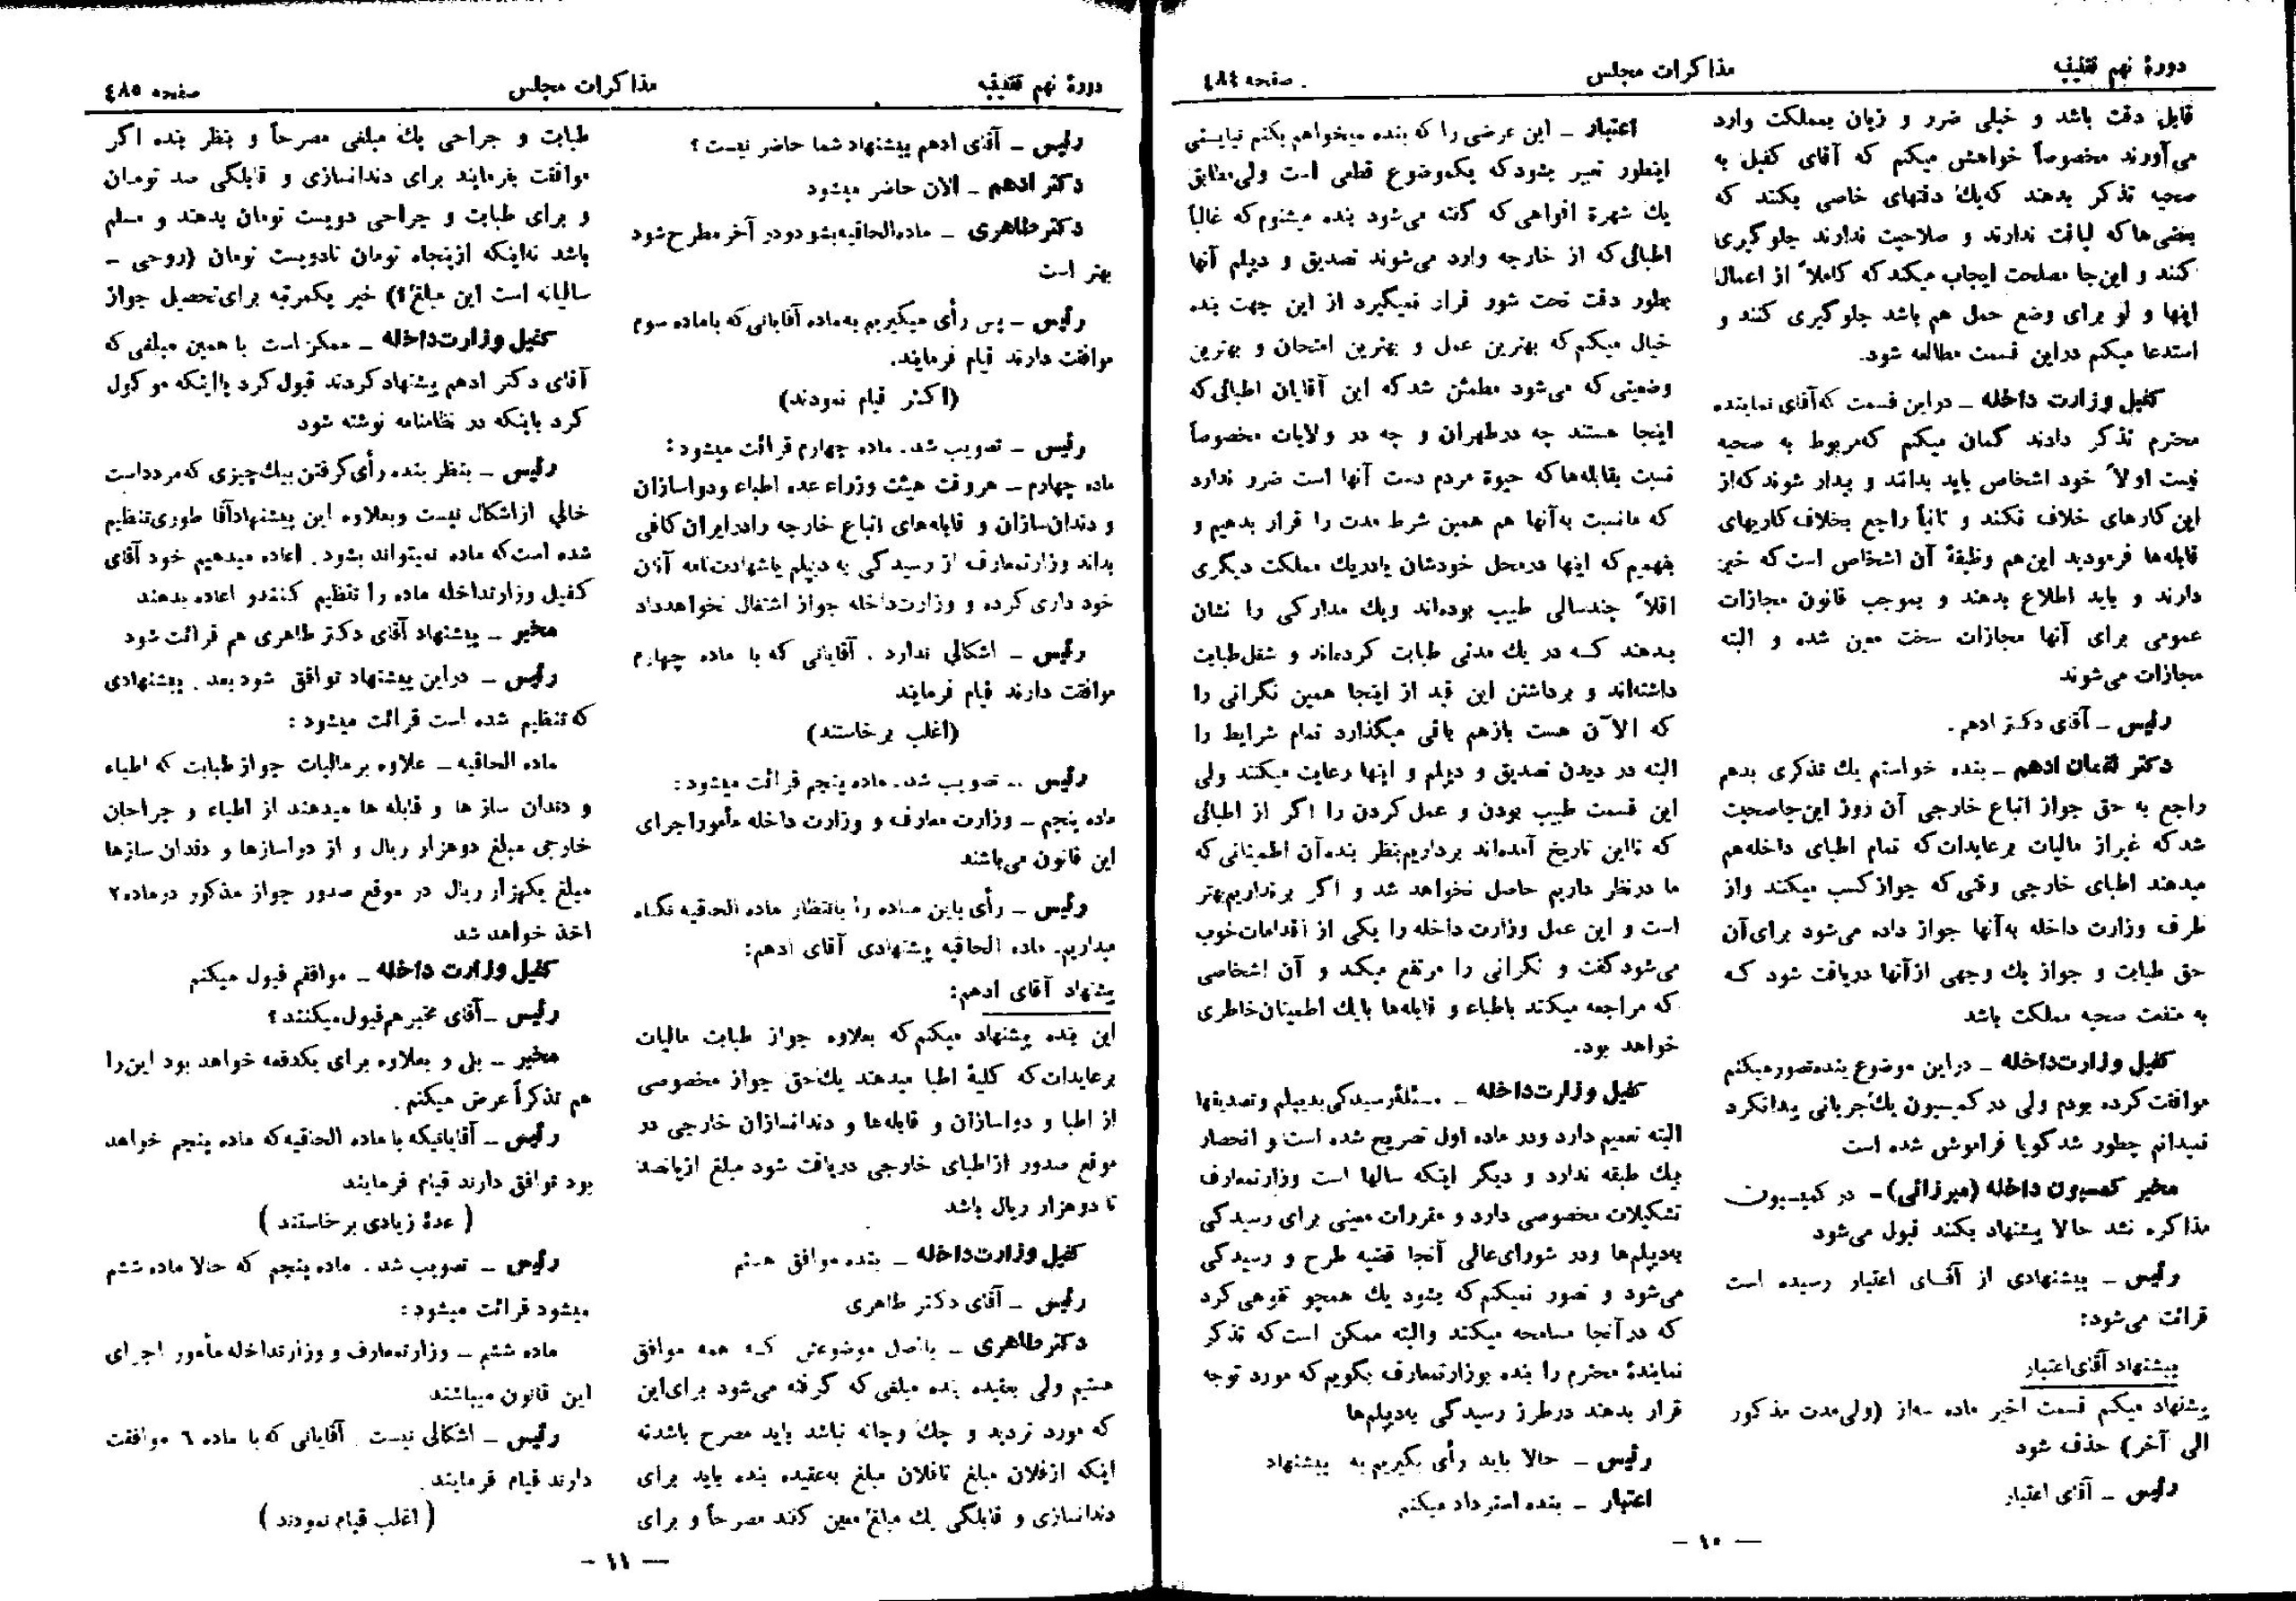 دورهٔ نهم تقنینیه
مذاکرات مجلس
صفحه ٤٨٤
قابل دقت باشد و خیلی ضرر و زیان بمملکت وارد
می‌آورند مخصوصاً خواهش میکنم که آقای کفیل به
صحیه تذکر بدهند که یك دقتهای خاصی بکنند که
بعضی‌ها که لیاقت ندارند و صلاحیت ندارند جلوگیری
کنند و این‌جا مصلحت ایجاب میکند که کاملاً از اعمال
اینها و لو برای وضع حمل هم باشد جلوگیری کنند و
استدعا میکنم دراین قسمت مطالعه شود.
کفیل وزارت داخله ـ دراین قسمت که آقای نماینده
محترم تذکر دادند گمان میکنم که مربوط به صحیه
نیست اولاً خود اشخاص باید بدانند و بیدار شوند که از
این کارهای خلاف نکنند و ثانیاً راجع بخلاف کاریهای
قابله‌ها فرمودید این‌هم وظیفهٔ آن اشخاص است که خبر
دارند و باید اطلاع بدهند و بموجب قانون مجازات
عمومی برای آنها مجازات سخت معین شده و البته
مجازات می‌شوند
رئیس ـ آقای دکتر ادهم.
دکتر لقمان ادهم ـ بنده خواستم یك تذکری بدهم
راجع به حق جواز اتباع خارجی آن روز این‌جا صحبت
شد که غیر از مالیات بر عایدات که تمام اطبای داخله هم
میدهند اطبای خارجی وقتی که جواز کسب میکنند واز
طرف وزارت داخله به‌آنها جواز داده می‌شود برای آن
حق طبابت و جواز یك وجهی ازآنها دریافت شود که
به منفعت صحیه مملکت باشد
کفیل وزارت‌داخله ـ دراین موضوع بنده‌تصور میکنم
موافقت کرده بودم ولی در کمیسیون یك‌جریانی پیدانکرد
نمیدانم چطور شد گویا فراموش شده است
مخبر کمسیون داخله (میرزائی)ـ در کمیسیون
مذاکره نشد حالا پیشنهاد بکنند قبول می‌شود
رئیس ـ پیشنهادی از آقـای اعتبار رسیده است
قرائت می‌شود:
پیشنهاد آقای اعتبار
پیشنهاد میکنم قسمت اخیر ماده سه‌از (ولی‌مدت مذکور
الی آخر) حذف شود
رئیس ـ آقای اعتبار
اعتبار ـ این عرضی را که بنده میخواهم بکنم نبایستی
اینطور تعبیر بشود که یکموضوع قطعی است ولی‌مطابق
یك شهرة افواهی که گفته می‌شود بنده میشنوم که غالباً
اطبائی که از خارجه وارد می‌شوند تصدیق و دیپلم آنها
بطور دقت تحت شور قرار نمیگیرد از این جهت بنده
خیال میکنم که بهترین عمل و بهترین امتحان و بهترین
وضعیتی که می‌شود مطمئن شد که این آقایان اطبائی که
اینجا هستند چه درطهران و چه در ولایات مخصوصاً
نسبت بقابله‌ها که حیوة مردم دست آنها است ضرر ندارد
که مانسبت به‌آنها هم همین شرط مدت را قرار بدهیم و
بفهمیم که اینها درمحل خودشان یادریك مملکت دیگری
اقلاً چندسالی طبیب بوده‌اند ویك مدارکی را نشان
بدهند کـه در یك مدتی طبابت کرده‌اند و شغل‌طبابت
داشته‌اند و برداشتن این قید از اینجا همین نگرانی را
که الآن هست بازهم باقی میگذارد تمام شرایط را
البته در دیدن تصدیق و دیپلم و اینها رعایت میکنند ولی
این قسمت طبیب بودن و عمل کردن را اگر از اطبائی
که تااین تاریخ آمده‌اند برداریم‌بنظر بنده‌آن اطمینانی که
ما درنظر داریم حاصل نخواهد شد و اگر بر نداریم‌بهتر
است و این عمل وزارت داخله را یکی از اقدامات‌خوب
می‌شود گفت و نگرانی را مرتفع میکند و آن اشخاصی
که مراجعه میکنند باطباء و قابله‌ها بایك اطمینان‌خاطری
خواهد بود.
کفیل وزارت‌داخله ـ مسئلهٔ رسیدگی بدیپلم و تصدیقها
البته تعمیم دارد ودر ماده اول تصریح شده است و انحصار
بیك طبقه ندارد و دیگر اینکه سالها است وزارتمعارف
تشکیلات مخصوصی دارد و مقررات معینی برای رسیدگی
به‌دیپلم‌ها ودر شورای‌عالی آنجا قضیه طرح و رسیدگی
می‌شود و تصور نمیکنم که بشود یك همچو توهمی کرد
که در آنجا مسامحه میکنند والبته ممکن است که تذکر
نمایندهٔ محترم را بنده بوزارتمعارف بگویم که مورد توجه
قرار بدهند درطرز رسیدگی به‌دیپلم‌ها
رئیس ـ حالا باید رأی بگیریم به پیشنهاد
اعتبار ـ بنده استرداد میکنم
— ۱۰ —
دورهٔ نهم تقنینیه
مذاکرات مجلس
صفحه ٤٨٥
رئیس ـ آقای ادهم پیشنهاد شما حاضر نیست ؟
دکتر ادهم ـ الان حاضر میشود
دکتر طاهری ـ ماده‌الحاقیه‌بشود و در آخر مطرح شود
بهتر است
رئیس ـ پس رأی میگیریم به‌ماده آقایانی که باماده سوم
موافقت دارند قیام فرمایند.
(اکثر قیام نمودند)
رئیس ـ تصویب شد. ماده چهارم قرائت میشود:
ماده چهارم ـ هروقت هیئت وزراء عده اطباء ودواسازان
و دندان‌سازان و قابله‌های اتباع خارجه رادرایران کافی
بداند وزارتمعارف از رسیدگی به دیپلم یاشهادت‌نامه آنان
خود داری کرده و وزارت‌داخله جواز اشتغال نخواهدداد
رئیس ـ اشکالی ندارد . آقایانی که با ماده چهارم
موافقت دارند قیام فرمایند
(اغلب برخاستند)
رئیس ـ تصویب شد. ماده پنجم قرائت میشود:
ماده پنجم ـ وزارت معارف و وزارت داخله مأموراجرای
این قانون می‌باشند
رئیس ـ رأی باین مـاده را بانتظار ماده الحاقیه نگاه
میداریم. ماده الحاقیه پیشنهادی آقای ادهم:
پیشنهاد آقای ادهم:
این بنده پیشنهاد میکنم که بعلاوه جواز طبابت مالیات
برعایدات که کلیهٔ اطبا میدهند یك‌حق جواز مخصوصی
از اطبا و دواسازان و قابله‌ها و دندانسازان خارجی در
موقع صدور ازاطبای خارجی دریافت شود مبلغ ازپانصد
تا دوهزار ریال باشد
کفیل وزارت‌داخله ـ بنده موافق هستم
رئیس ـ آقای دکتر طاهری
دکتر طاهری ـ بااصل موضوعش کـه همه موافق
هستیم ولی بعقیده بنده مبلغی که گرفته می‌شود برای‌این
که مورد تردید و چك وچانه نباشد باید مصرح باشدنه
اینکه ازفلان مبلغ تافلان مبلغ به‌عقیده بنده باید برای
دندانسازی و قابلگی یك مبلغ معین کنند مصرحاً و برای
طبابت و جراحی یك مبلغی مصرحاً و بنظر بنده اگر
موافقت بفرمایند برای دندانسازی و قابلگی صد تومـان
و برای طبابت و جراحی دویست تومان بدهند و مسلم
باشد نه‌اینکه ازپنجاه تومان تادویست تومان (روحی ـ
سالیانه است این مبلغ؟) خیر یکمرتبه برای‌تحصیل جواز
کفیل وزارت‌داخله ـ ممکن است با همین مبلغی که
آقای دکتر ادهم پیشنهاد کردند قبول کرد یااینکه موکول
کرد باینکه در نظامنامه نوشته شود
رئیس ـ بنظر بنده رأی گرفتن بیك‌چیزی که مردداست
خالی ازاشکال نیست وبعلاوه این پیشنهادآقا طوری‌تنظیم
شده است که ماده نمیتواند بشود . اعاده میدهیم خود آقای
کفیل وزارتداخله ماده را تنظیم کنندو اعاده بدهند
مخبر ـ پیشنهاد آقای دکتر طاهری هم قرائت شود
رئیس ـ دراین پیشنهاد توافق شود بعد . پیشنهادی
که تنظیم شده است قرائت میشود :
ماده الحاقیه ـ علاوه بر مالیات جواز طبابت که اطباء
و دندان ساز ها و قابله ها میدهند از اطباء و جراحان
خارجی مبلغ دوهزار ریال و از دواسازها و دندان سازها
مبلغ یکهزار ریال در موقع صدور جواز مذکور درماده۲
اخذ خواهد شد
کفیل وزارت داخله ـ موافقم قبول میکنم
رئیس ـ آقای مخبرهم‌قبول‌میکنند ؟
مخبر ـ بلی و بعلاوه برای یکدفعه خواهد بود این‌را
هم تذکراً عرض میکنم .
رئیس ـ آقایانیکه با ماده الحاقیه که ماده پنجم خواهد
بود توافق دارند قیام فرمایند
( عدهٔ زیادی برخاستند )
رئیس ـ تصویب شد . ماده پنجم که حالا ماده ششم
میشود قرائت میشود :
ماده ششم ـ وزارتمعارف و وزارتداخله مأمور اجرای
این قانون میباشند
رئیس ـ اشکالی نیست . آقایانی که با ماده ٦ موافقت
دارند قیام فرمایند.
( اغلب قیام نمودند )
— ۱۱ —